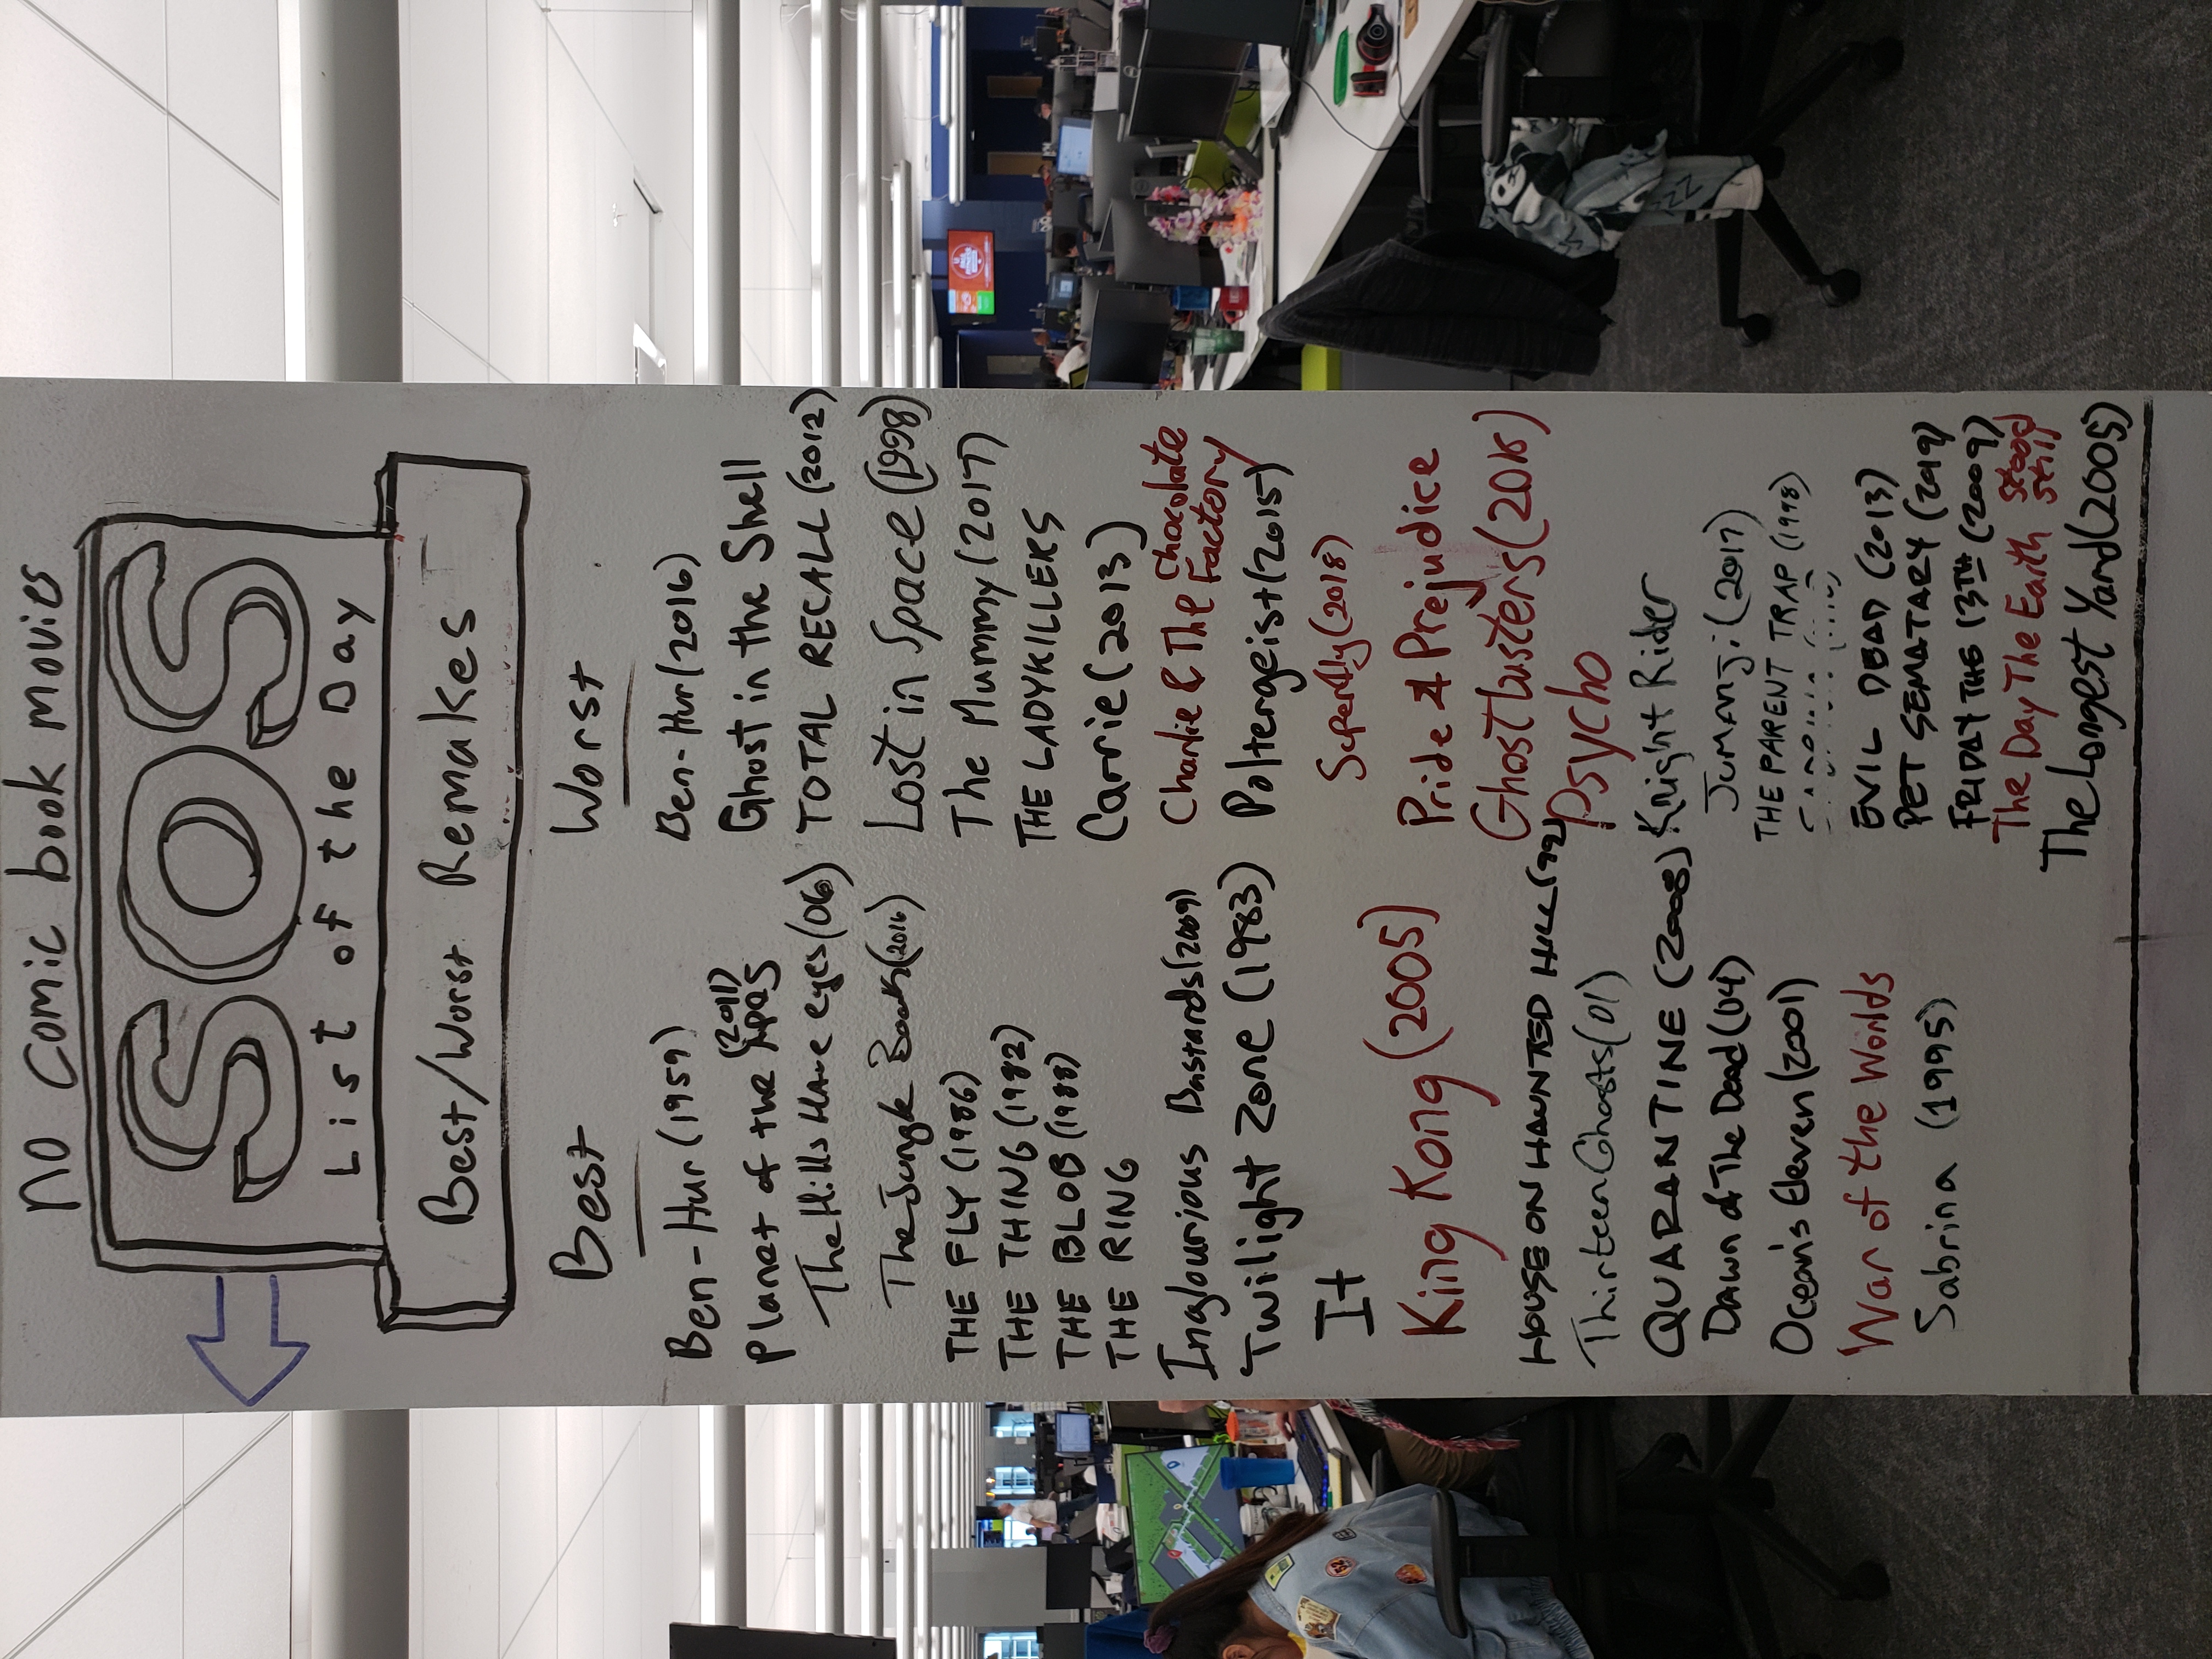 no comic book movies
SOS
List of the Day
Best/Worst Remakes
Best
Ben-Hur (1959)
(2011)
Planet of the Apes
The Hills Have eyes (06)
The Jungle Book (2016)
THE FLY (1986)
THE THING (1982)
THE BLOB (1988)
THE RING
Inglourious Bastards (2009)
Twilight Zone (1983)
It
King Kong (2005)
HOUSE ON HAUNTED HILL (99)
Thirteen Ghosts (01)
QUARANTINE (2008)
Dawn of The Dead (04)
Ocean's Eleven (2001)
War of the Worlds
Sabrina (1995)
Worst
Ben-Hur (2016)
Ghost in the Shell
TOTAL RECALL (2012)
Lost in Space (1998)
The Mummy (2017)
THE LADYKILLERS
Carrie (2013)
Charlie & The Chocolate
Factory
Poltergeist (2015)
Superfly (2018)
Pride & Prejudice
Ghostbusters (2016)
Psycho
Knight Rider
Jumanji (2017)
THE PARENT TRAP (1998)
EVIL DEAD (2013)
PET SEMATARY (2019)
FRIDAY THE 13TH (2009)
The Day The Earth Stood
Still
The Longest Yard (2005)